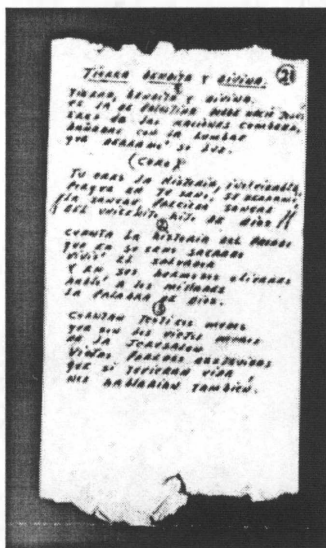 TIERRA BENDITA Y DIVINA. 21
1
TIERRA, BENDITA Y DIVINA.
ES LA DE PALESTINA DONDE NACIÓ JESÚS
ERES DE LAS NACIONES CUMBRE,
BAÑADAS CON LA LUMBRE
QUE DERRAMÓ SU LUZ.
(CORO)
TU ERES LA HISTORIA, INOLVIDABLE,
PORQUE EN TU SENO, SE DERRAMÓ
// LA SANGRE, PRECIOSA SANGRE //
DEL UNIGENITO HIJO DE DIOS
2
CUENTA LA HISTORIA DEL PASADO
QUE EN SU SENO SAGRADO
VIVIÓ EL SALVADOR
Y EN SUS HERMOSOS OLIVARES
HABLÓ A LOS MILLARES
LA PALABRA DE DIOS.
3
CUENTAN TESTIGOS MUDOS
QUE SON LOS VIEJOS MUROS
DE LA JERUSALEN
VIEJAS PAREDES DESTRUIDAS
QUE SI TUVIERAN VIDA,
NOS HABLARIAN TAMBIÉN.